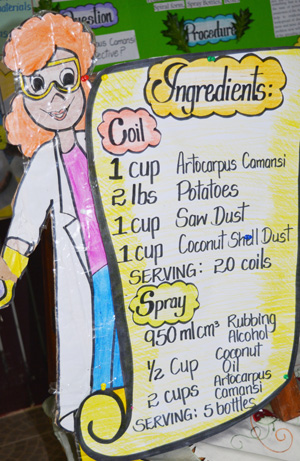 aterials
Question
Procedure
Camansi
Ingredients:
Coil
1 cup Artocarpus Camansi
2 lbs Potatoes
1 cup Saw Dust
1 cup Coconut Shell Dust
SERVING: 20 coils
Spray
950 ml cm³ Rubbing Alcohol
1/2 Cup Coconut Oil
2 cups Artocarpus Camansi
SERVING: 5 bottles